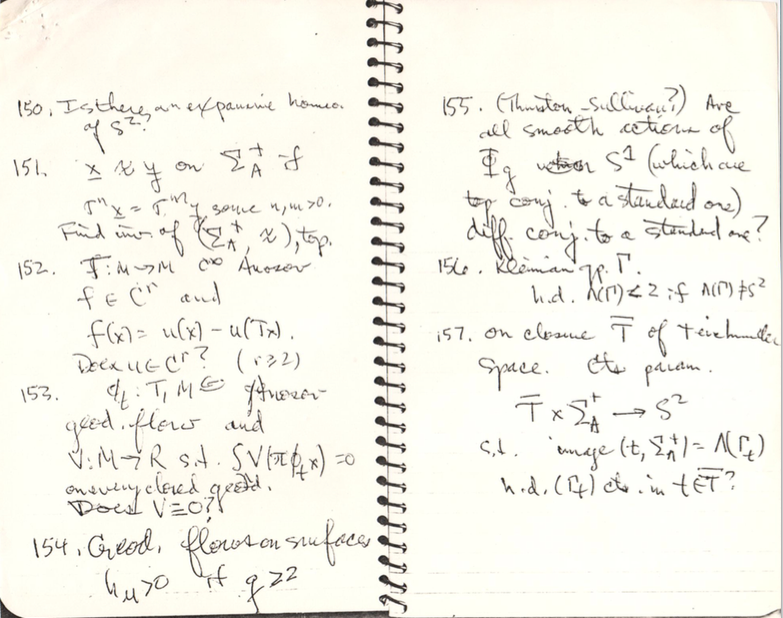 150. Is there an expansive homeo.
of S²?
151. x ≈ y on Σ_A^+ if
T^n x = T^m y some n, m > 0.
Find inv. of (Σ_A^+, ≈), top.
152. T: M → M C^∞ Anosov
f ∈ C^r and
f(x) = u(x) - u(Tx).
Does u ∈ C^r? (r ≥ 2)
153. φ_t: T_1 M Anosov
geod. flow and
V: M → R s.t. ∫V(πφ_t x) = 0
on every closed geod.
Does V ≡ 0?
154. Geod. flows on surfaces
h_μ > 0 if g ≥ 2
155. (Thurston - Sullivan?) Are
all smooth actions of
Φ_g on S¹ (which are
top conj. to a standard one)
diff. conj. to a standard one?
156. Kleinian gp. Γ.
h.d. Λ(Γ) < 2 if Λ(Γ) ≠ S²
157. on closure T̅ of Teichmuller
space. cts param.
T̅ × Σ_A^+ → S²
s.t. image (t, Σ_A^+) = Λ(Γ_t)
h.d. (Γ_t) cts. in t ∈ T̅?